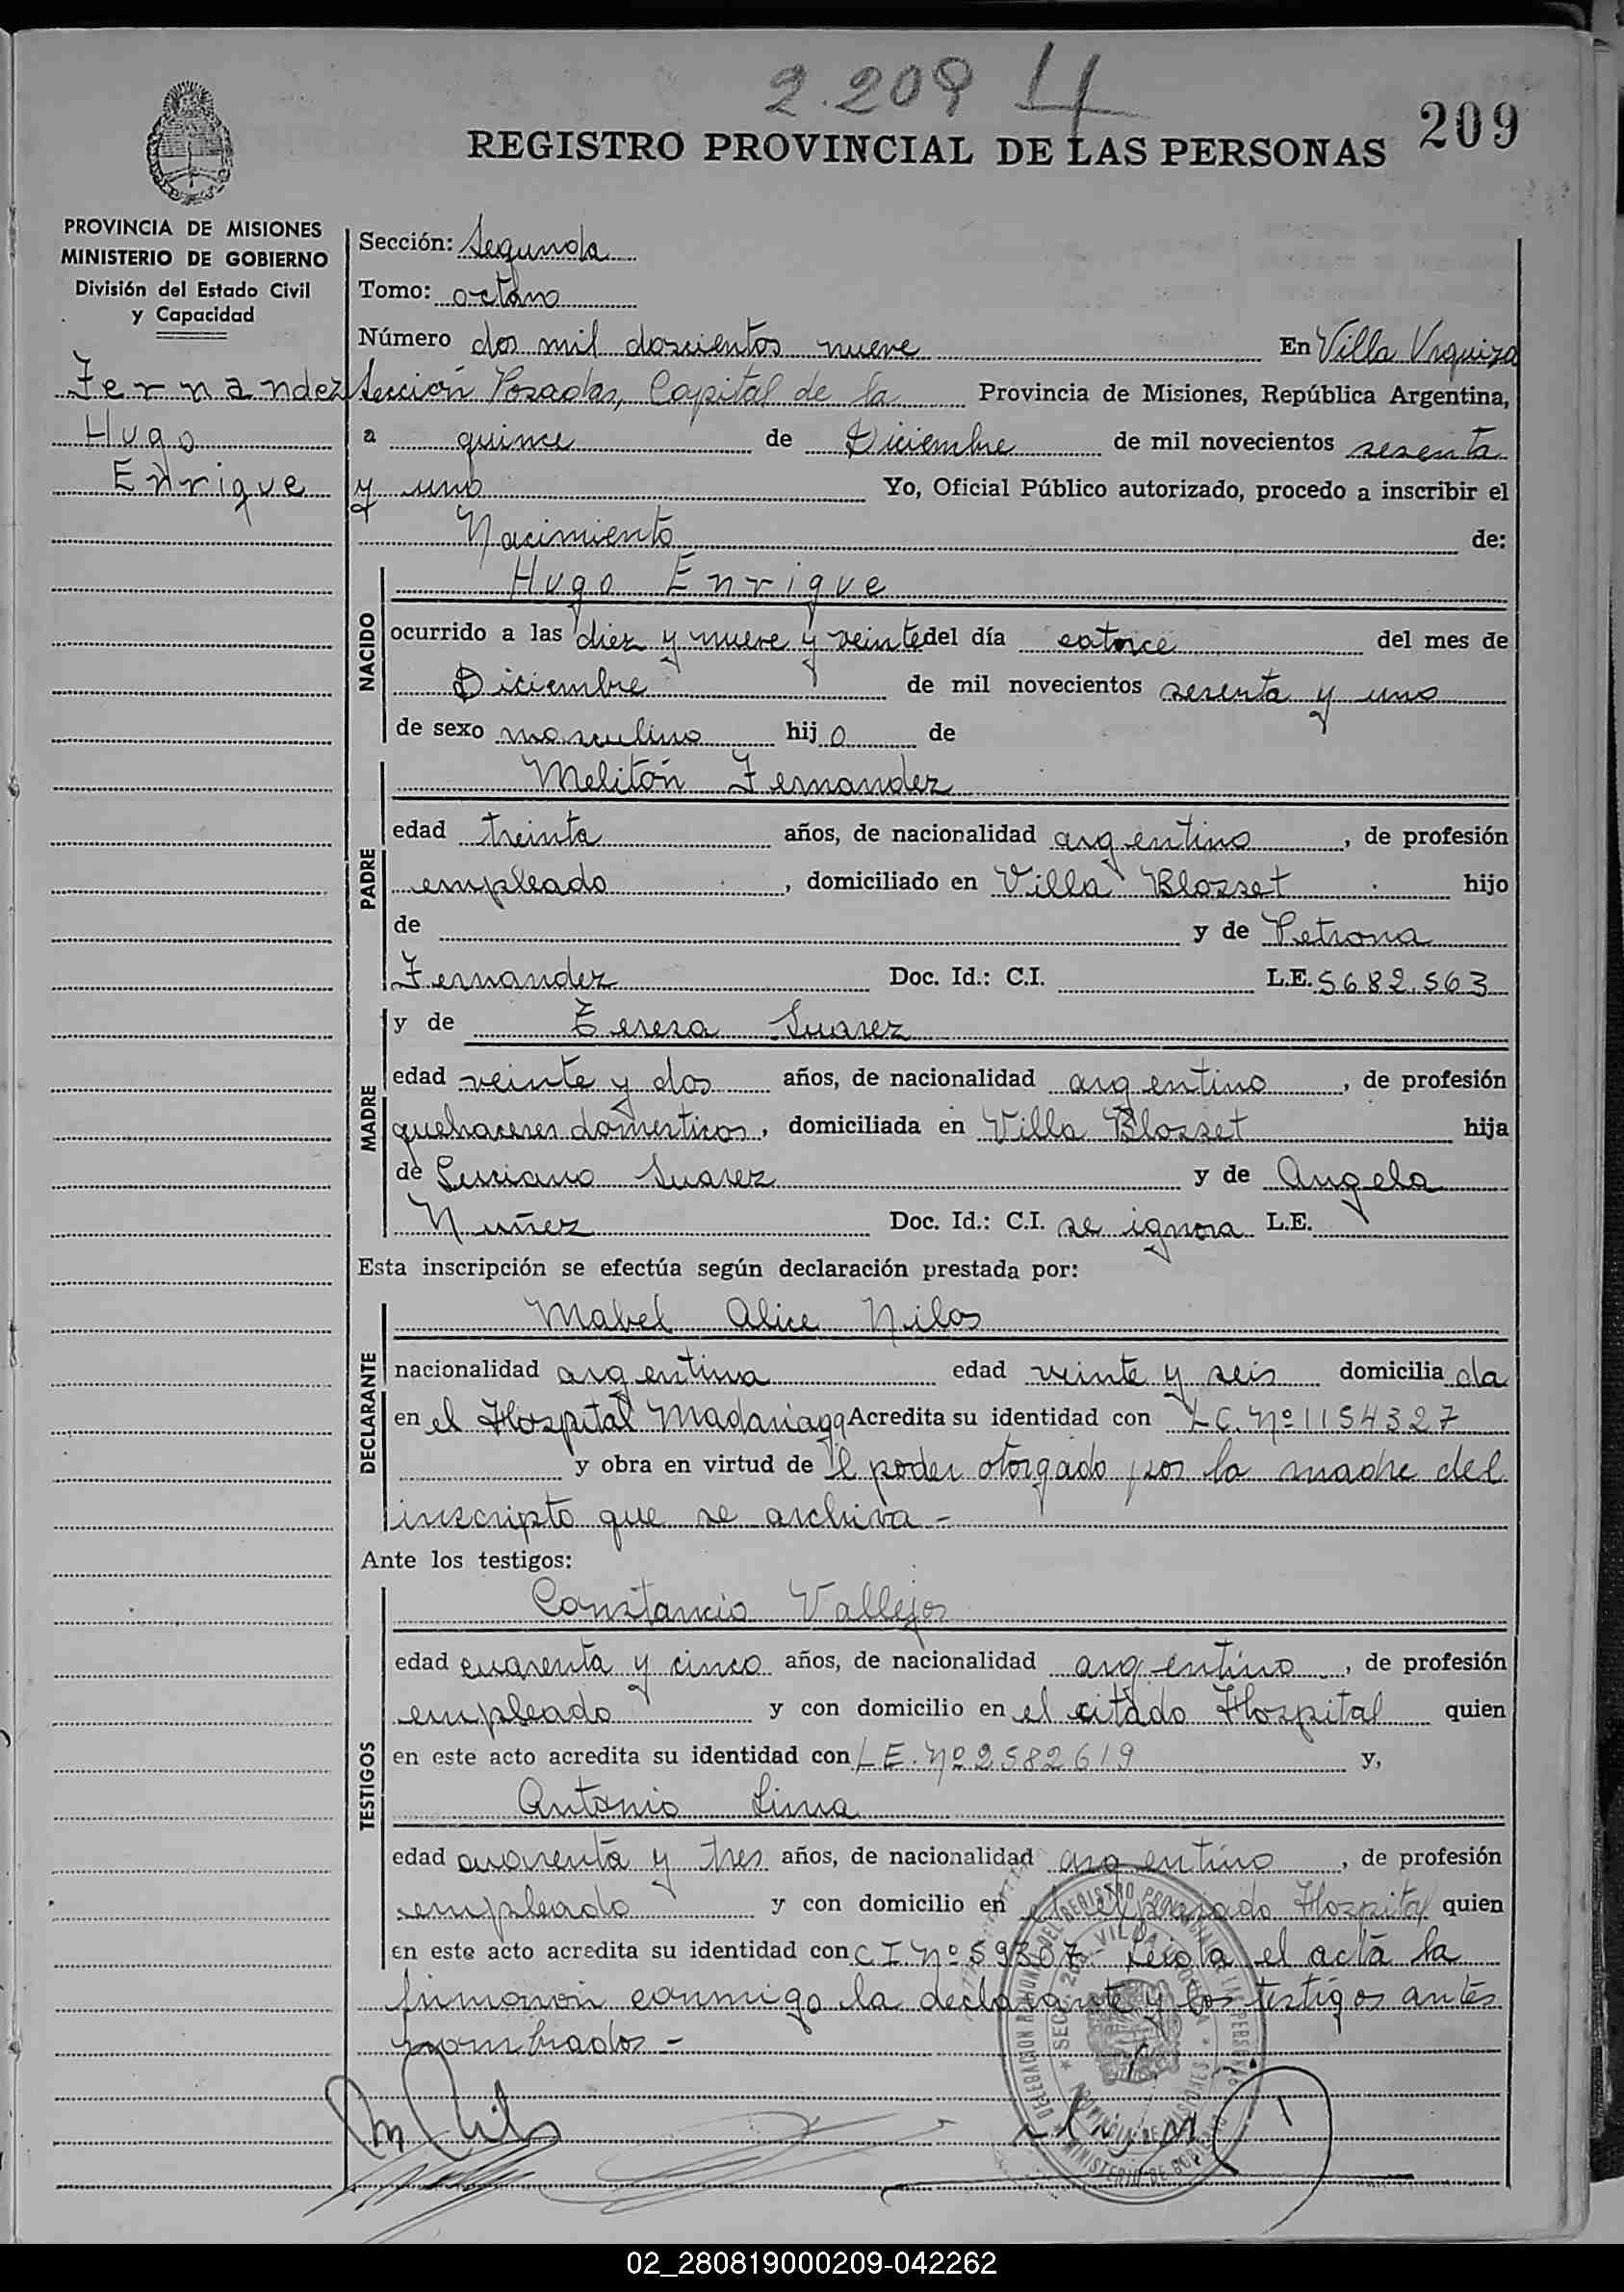 2.209 4
209
REGISTRO PROVINCIAL DE LAS PERSONAS
PROVINCIA DE MISIONES
MINISTERIO DE GOBIERNO
División del Estado Civil
y Capacidad
Fernandez
Hugo
Enrique
Sección: Segunda
Tomo: octavo
Número dos mil doscientos nueve En Villa Urquiza
Sección Posadas, Capital de la Provincia de Misiones, República Argentina,
a quince de Diciembre de mil novecientos sesenta
y uno Yo, Oficial Público autorizado, procedo a inscribir el
Nacimiento de:
NACIDO
Hugo Enrique
ocurrido a las diez y nueve y veinte del día catorce del mes de
Diciembre de mil novecientos sesenta y uno
de sexo masculino hijo de
PADRE
Melitón Fernandez
edad treinta años, de nacionalidad argentino, de profesión
empleado, domiciliado en Villa Blosset hijo
de y de Petrona
Fernandez Doc. Id.: C.I. L.E. 5682.563
MADRE
y de Teresa Suarez
edad veinte y dos años, de nacionalidad argentino, de profesión
quehaceres domesticos, domiciliada en Villa Blosset hija
de Luciano Suarez y de Angela
Nuñez Doc. Id.: C.I. se ignora L.E.
Esta inscripción se efectúa según declaración prestada por:
DECLARANTE
Mabel Alice Nilos
nacionalidad argentina edad veinte y seis domiciliada
en el Hospital Madariaga Acredita su identidad con L.C. Nº 1154327
y obra en virtud de l poder otorgado por la madre del
inscripto que se archiva -
Ante los testigos:
TESTIGOS
Constancio Vallejos
edad cuarenta y cinco años, de nacionalidad argentino, de profesión
empleado y con domicilio en el citado Hospital quien
en este acto acredita su identidad con L.E. Nº 2582619 y,
Antonio Lima
edad cuarenta y tres años, de nacionalidad argentino, de profesión
empleado y con domicilio en el expresado Hospital quien
en este acto acredita su identidad con C.I. Nº 59307. Leida el acta la
firmaron conmigo la declarante y los testigos antes
nombrados -
02_280819000209-042262